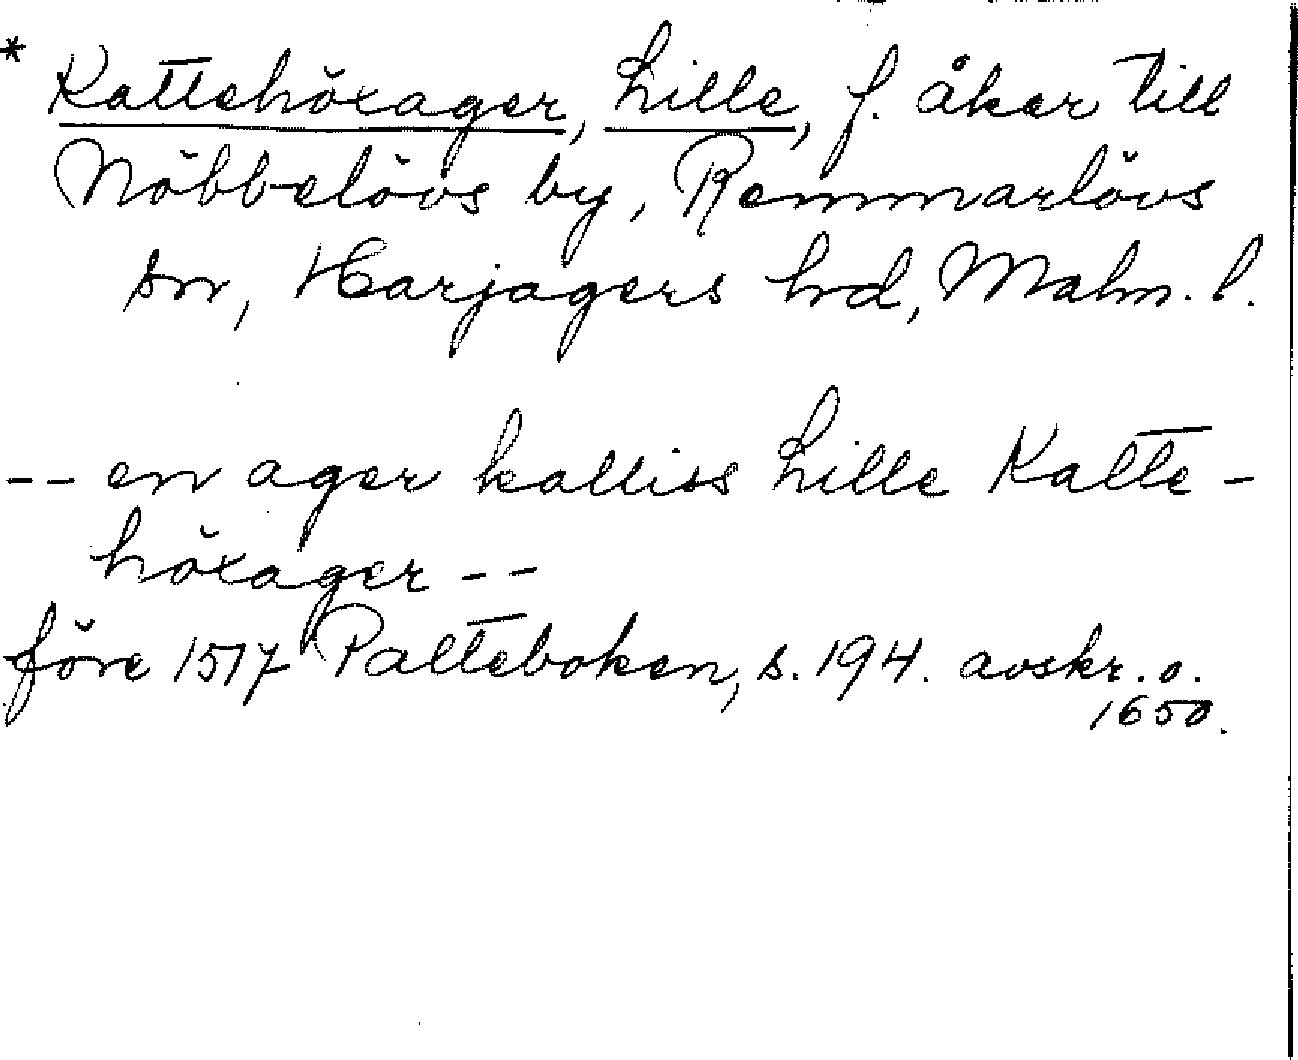 * Kattehöxager, Lille, f. åker till
Nöbbelövs by, Remmarlövs
sn, Harjagers hd, Malm. l.
-- en ager kalliss Lille Katte-
höxager --
före 1517 Palteboken, s. 194. avskr. o.
1650.